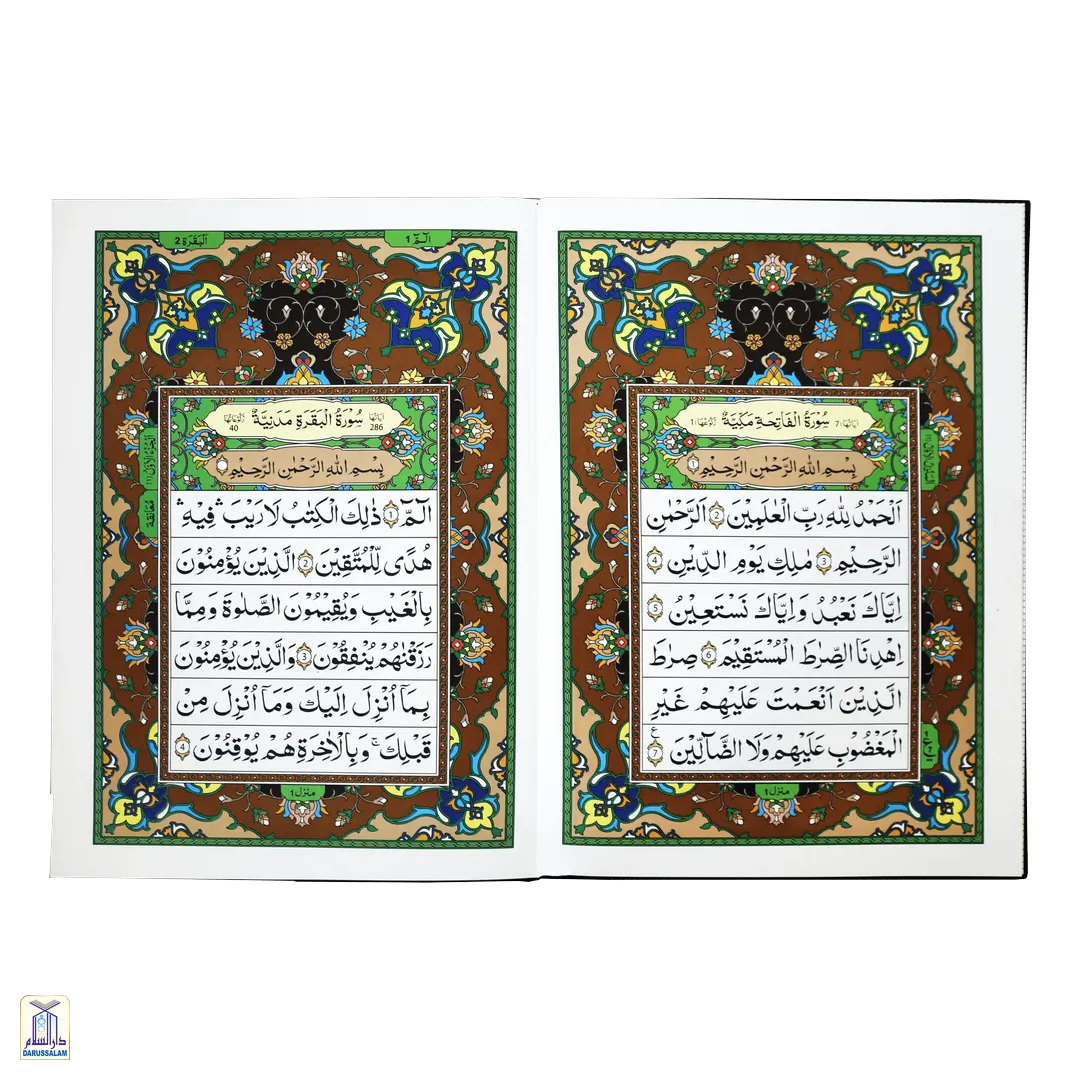 سُوْرَةُ الْفَاتِحَةِ مَكِّيَّةٌ
اٰيَاتُهَا: 7
رُكُوْعُهَا: 1
بِسْمِ اللهِ الرَّحْمٰنِ الرَّحِيْمِ ①
اَلْحَمْدُ لِلّٰهِ رَبِّ الْعٰلَمِيْنَ ② الرَّحْمٰنِ
الرَّحِيْمِ ③ مٰلِكِ يَوْمِ الدِّيْنِ ④
اِيَّاكَ نَعْبُدُ وَاِيَّاكَ نَسْتَعِيْنُ ⑤
اِهْدِنَا الصِّرَاطَ الْمُسْتَقِيْمَ ⑥ صِرَاطَ
الَّذِيْنَ اَنْعَمْتَ عَلَيْهِمْ غَيْرِ
الْمَغْضُوْبِ عَلَيْهِمْ وَلَا الضَّآلِّيْنَ ⑦
منزل ١
الٓمّٓ 1
اَلْبَقَرَة 2
سُوْرَةُ الْبَقَرَةِ مَدَنِيَّةٌ
اٰيَاتُهَا 286
رُكُوْعَاتُهَا 40
بِسْمِ اللهِ الرَّحْمٰنِ الرَّحِيْمِ
الٓمّٓ ① ذٰلِكَ الْكِتٰبُ لَا رَيْبَ ۛ فِيْهِ ۛ
هُدًى لِّلْمُتَّقِيْنَ ② الَّذِيْنَ يُؤْمِنُوْنَ
بِالْغَيْبِ وَيُقِيْمُوْنَ الصَّلٰوةَ وَمِمَّا
رَزَقْنٰهُمْ يُنْفِقُوْنَ ③ وَالَّذِيْنَ يُؤْمِنُوْنَ
بِمَآ اُنْزِلَ اِلَيْكَ وَمَآ اُنْزِلَ مِنْ
قَبْلِكَ ۚ وَبِالْاٰخِرَةِ هُمْ يُوْقِنُوْنَ ④
معانقة
منزل ١
دار السلام
DARUSSALAM